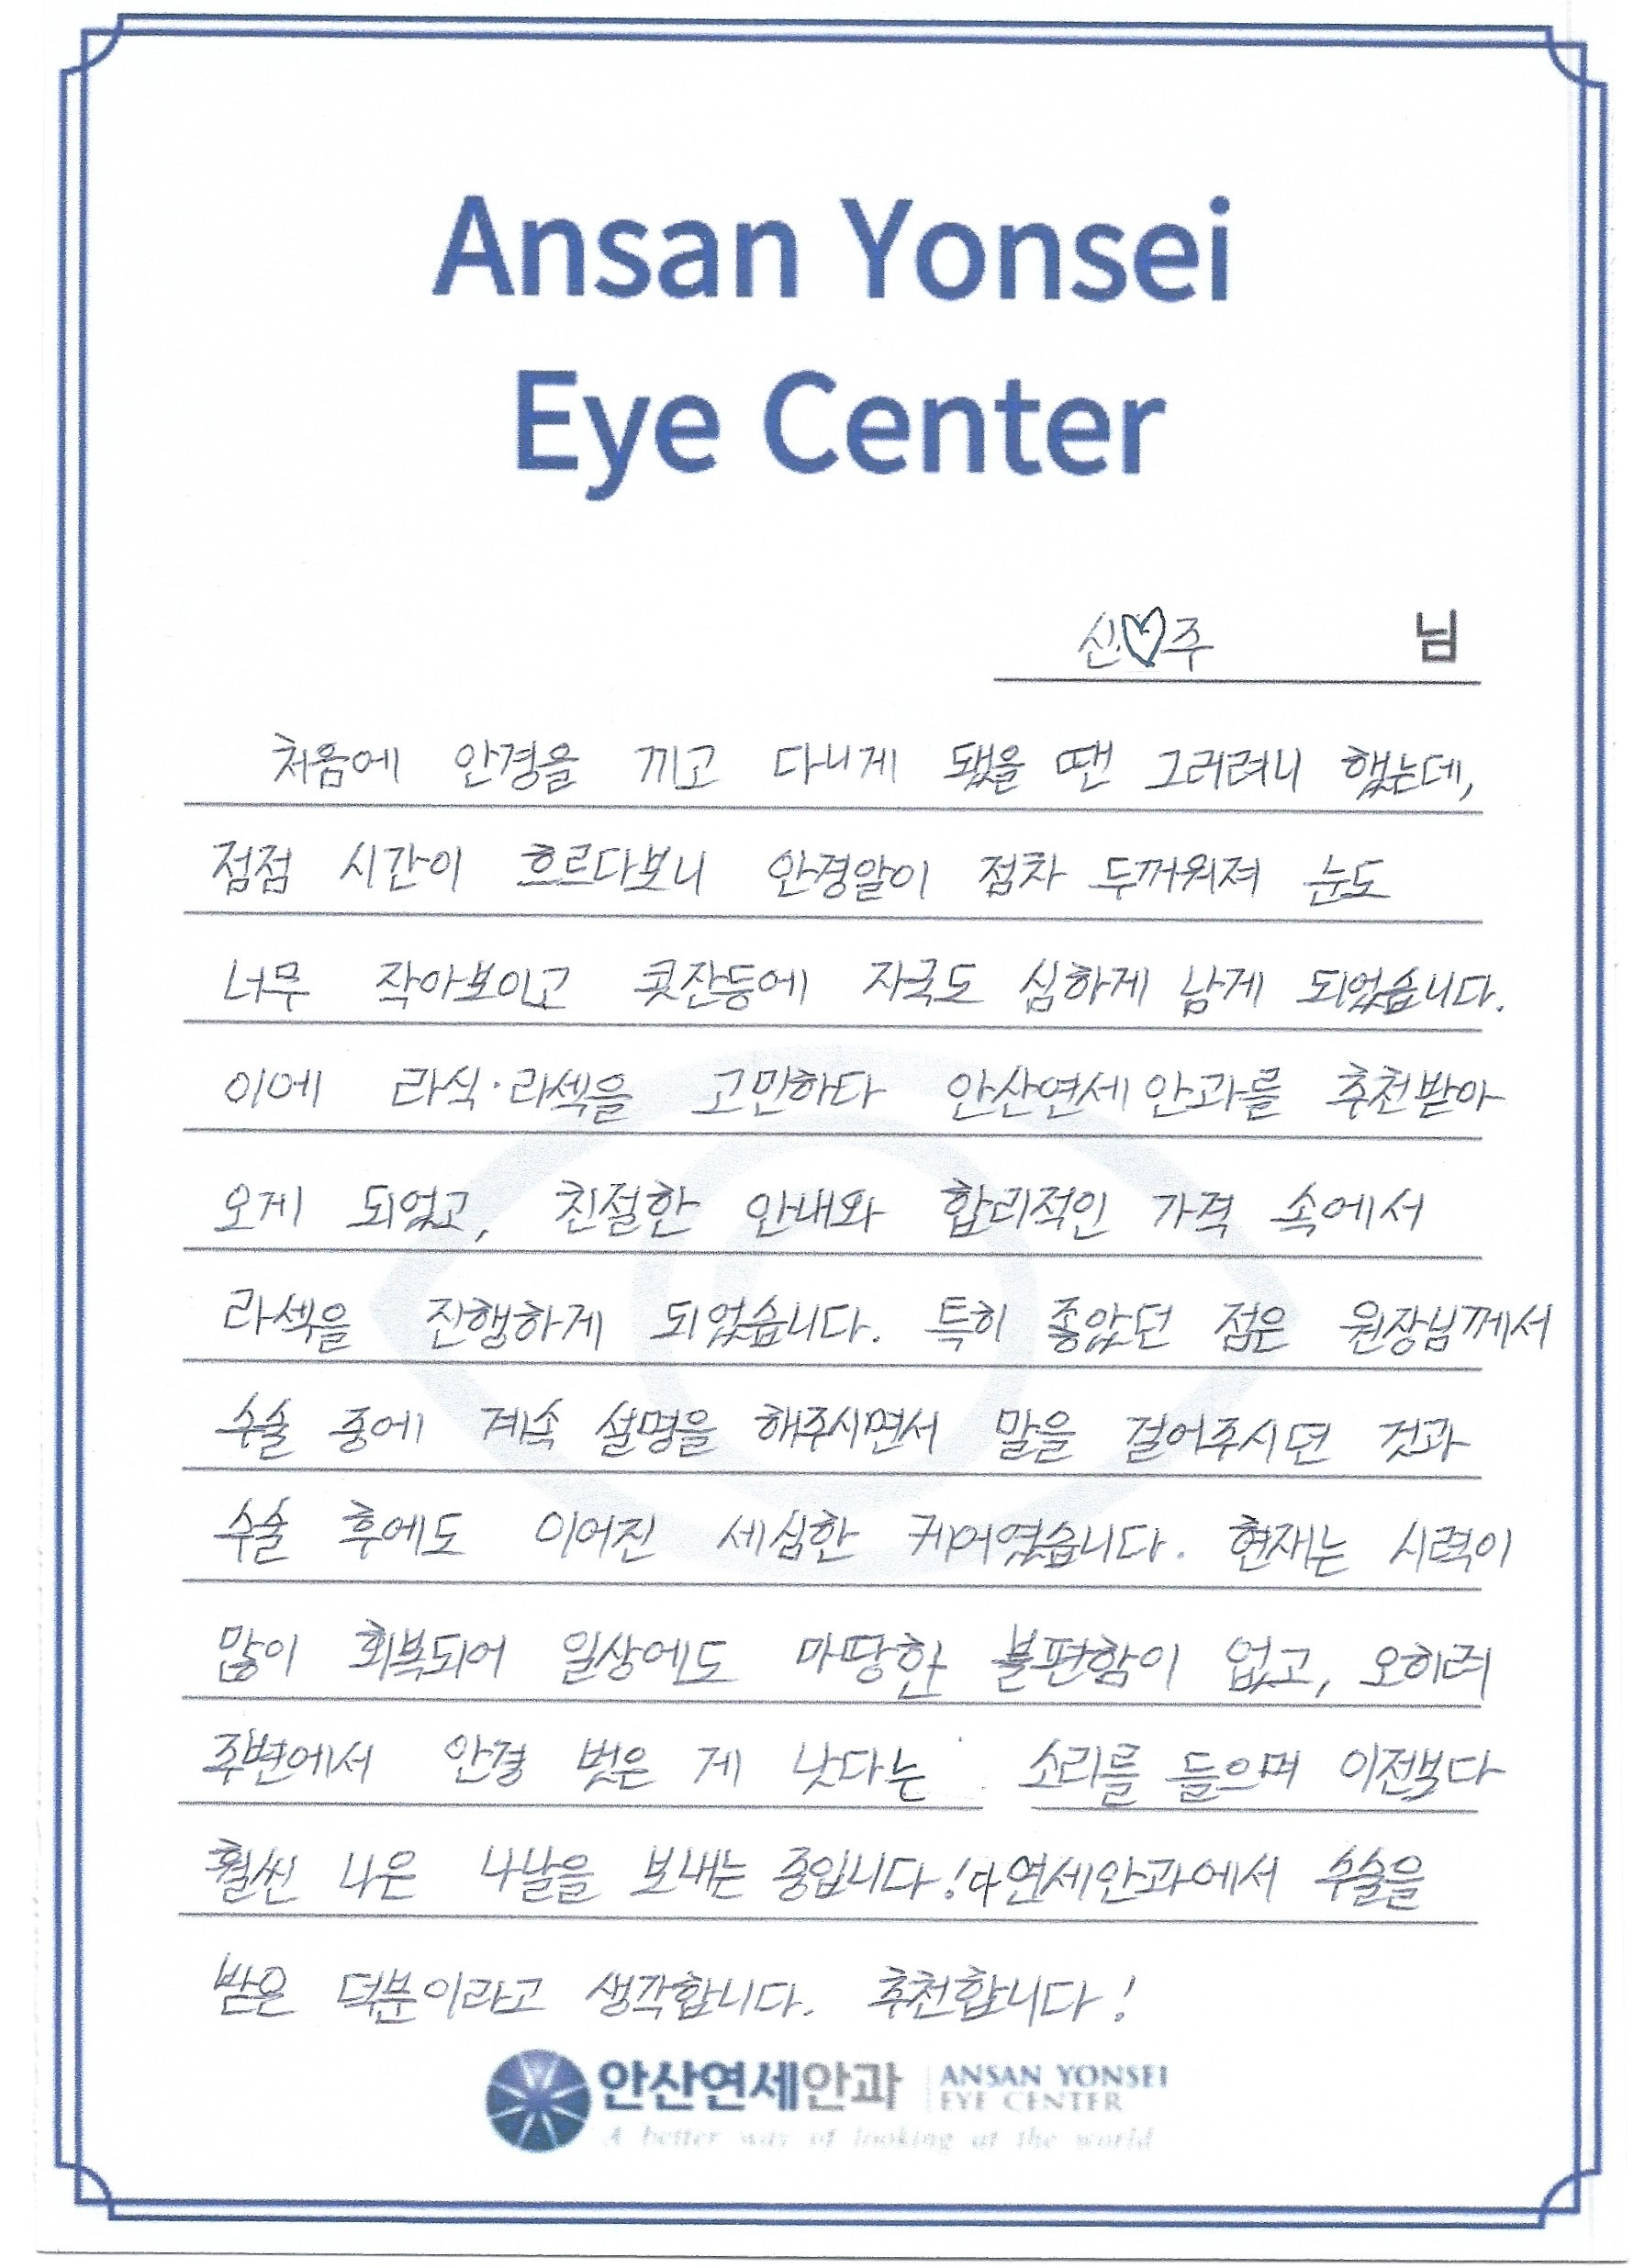 Ansan Yonsei
Eye Center
신♡주 님
처음에 안경을 끼고 다니게 됐을 땐 그러려니 했는데,
점점 시간이 흐르다보니 안경알이 점차 두꺼워져 눈도
너무 작아보이고 콧잔등에 자국도 심하게 남게 되었습니다.
이에 라식·라섹을 고민하다 안산연세안과를 추천받아
오게 되었고, 친절한 안내와 합리적인 가격 속에서
라섹을 진행하게 되었습니다. 특히 좋았던 점은 원장님께서
수술 중에 계속 설명을 해주시면서 말을 걸어주시던 것과
수술 후에도 이어진 세심한 케어였습니다. 현재는 시력이
많이 회복되어 일상에도 마땅한 불편함이 없고, 오히려
주변에서 안경 벗은 게 낫다는 소리를 들으며 이전보다
훨씬 나은 나날을 보내는 중입니다! 다 연세안과에서 수술을
받은 덕분이라고 생각합니다. 추천합니다!
안산연세안과 ANSAN YONSEI
EYE CENTER
A better way of looking at the world